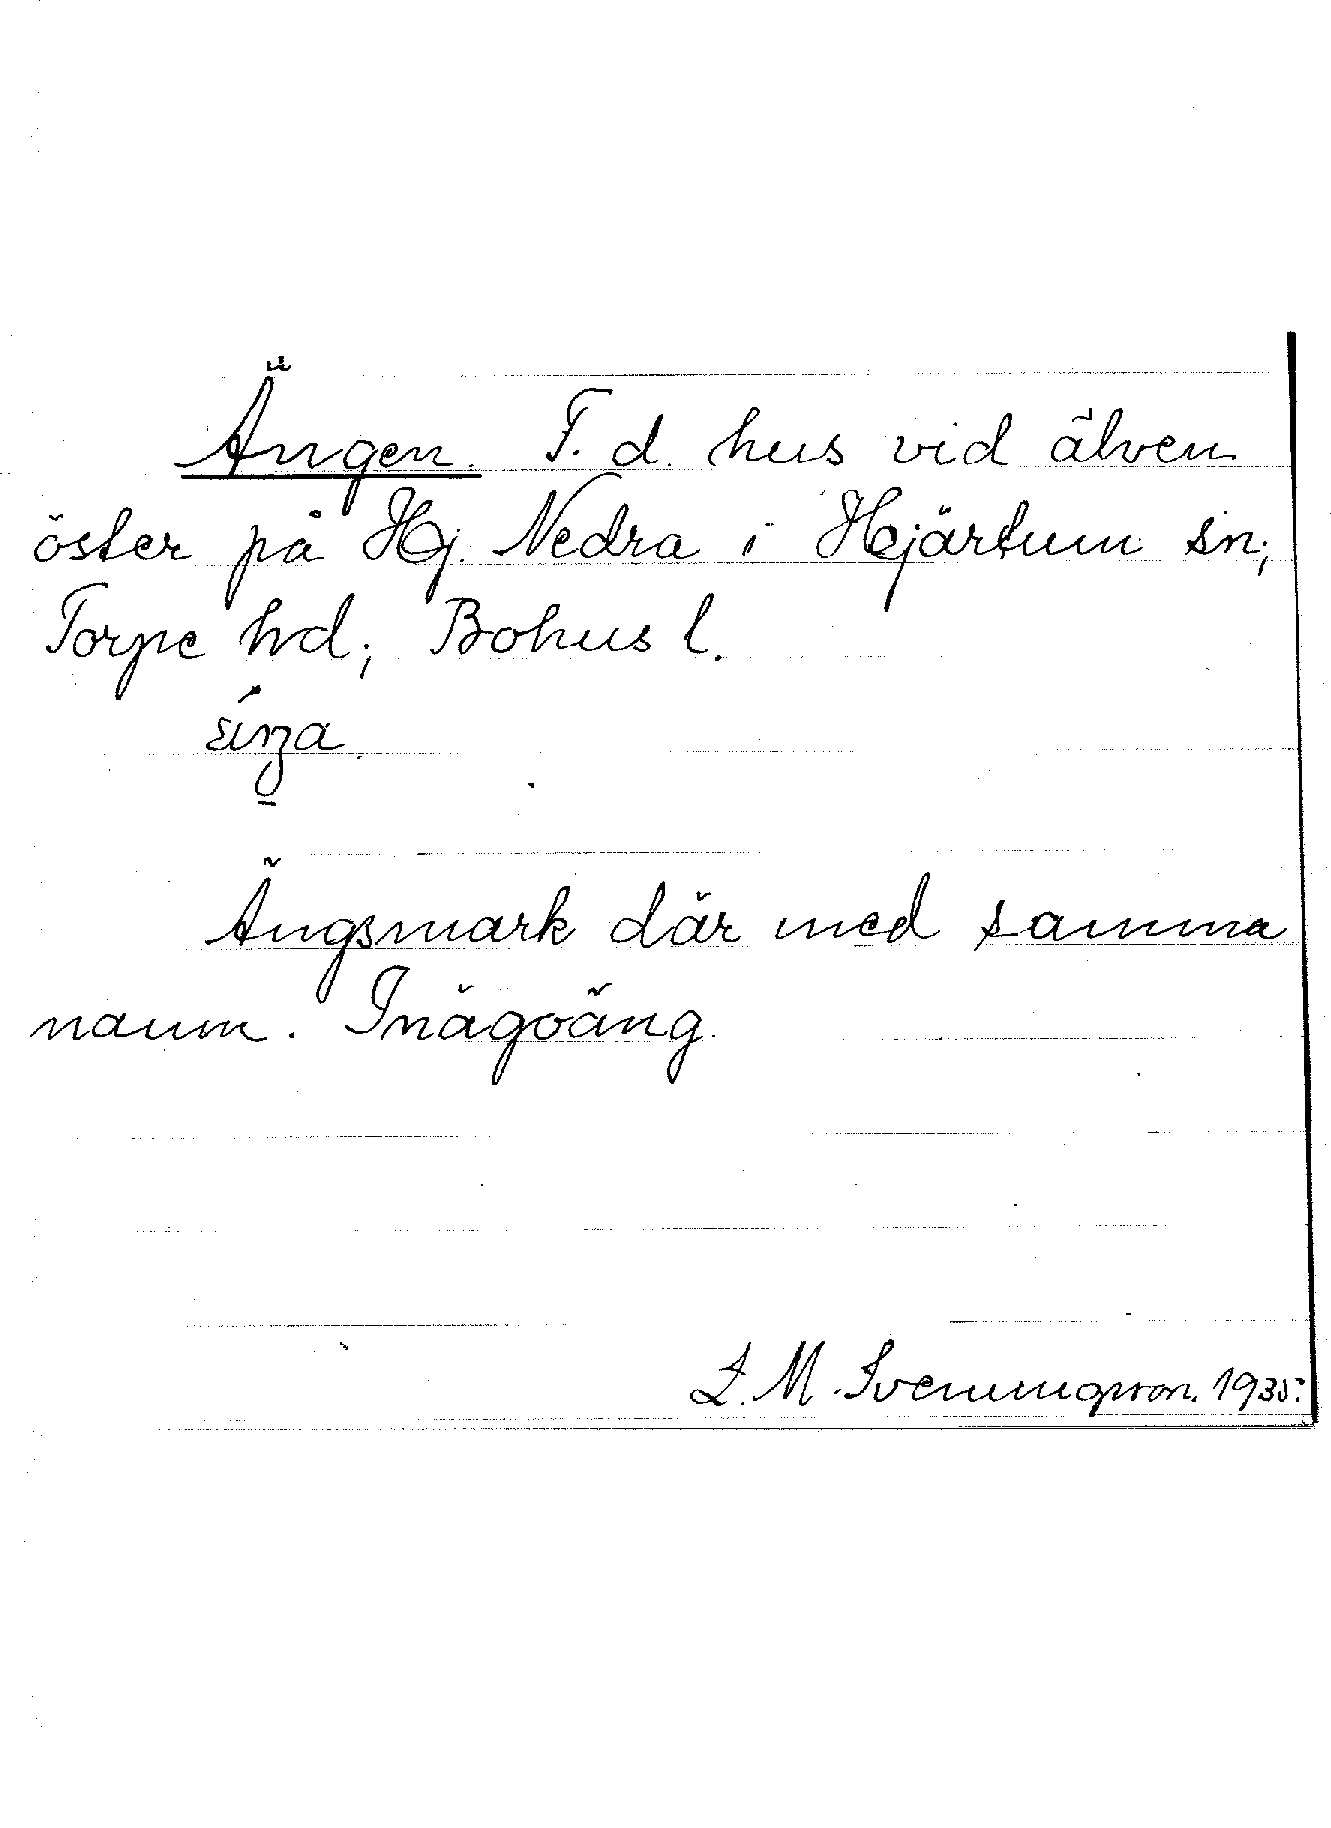 Ängen. F. d. hus vid älven
öster på Hj. Nedra i Hjärtum sn;
Torpe hd; Bohus l.
Ängsmark där med samma
namn. Inägoäng.
L. M. Svenungsson. 1935.